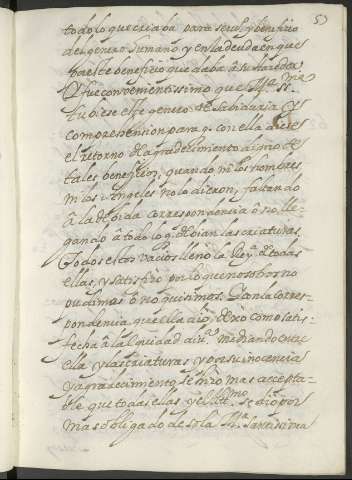 53
todo lo que criaba para servº y beneficio
del genero humano y en la deuda en que
por este beneficio quedaba à su hazedor.
Y fue convenientissimo que Mª Sma
tubiese este genero de Sabiduria y
comprehension para q. con ella diese
el retorno de agradecimiento digno de
tales beneficios, quando ni los hombres,
ni los Angeles no lo dieron, faltando
à la debida correspondencia ò no lle-
gando à todo lo q. debian las criaturas.
Todos estos vacios llenò la Reyª de todas
ellas, y satisfizo por lo que nosotros no
pudimos ò no quisimos. Y con la corres-
pondencia que ella diò, dexò como satis-
fecha à la equidad divª mediando entre
ella y las criaturas y por su inocencia
y agradecimiento se hizo mas accepta-
ble que todas ellas y el Altmo se diò por
mas obligado de sola Mª Santissima